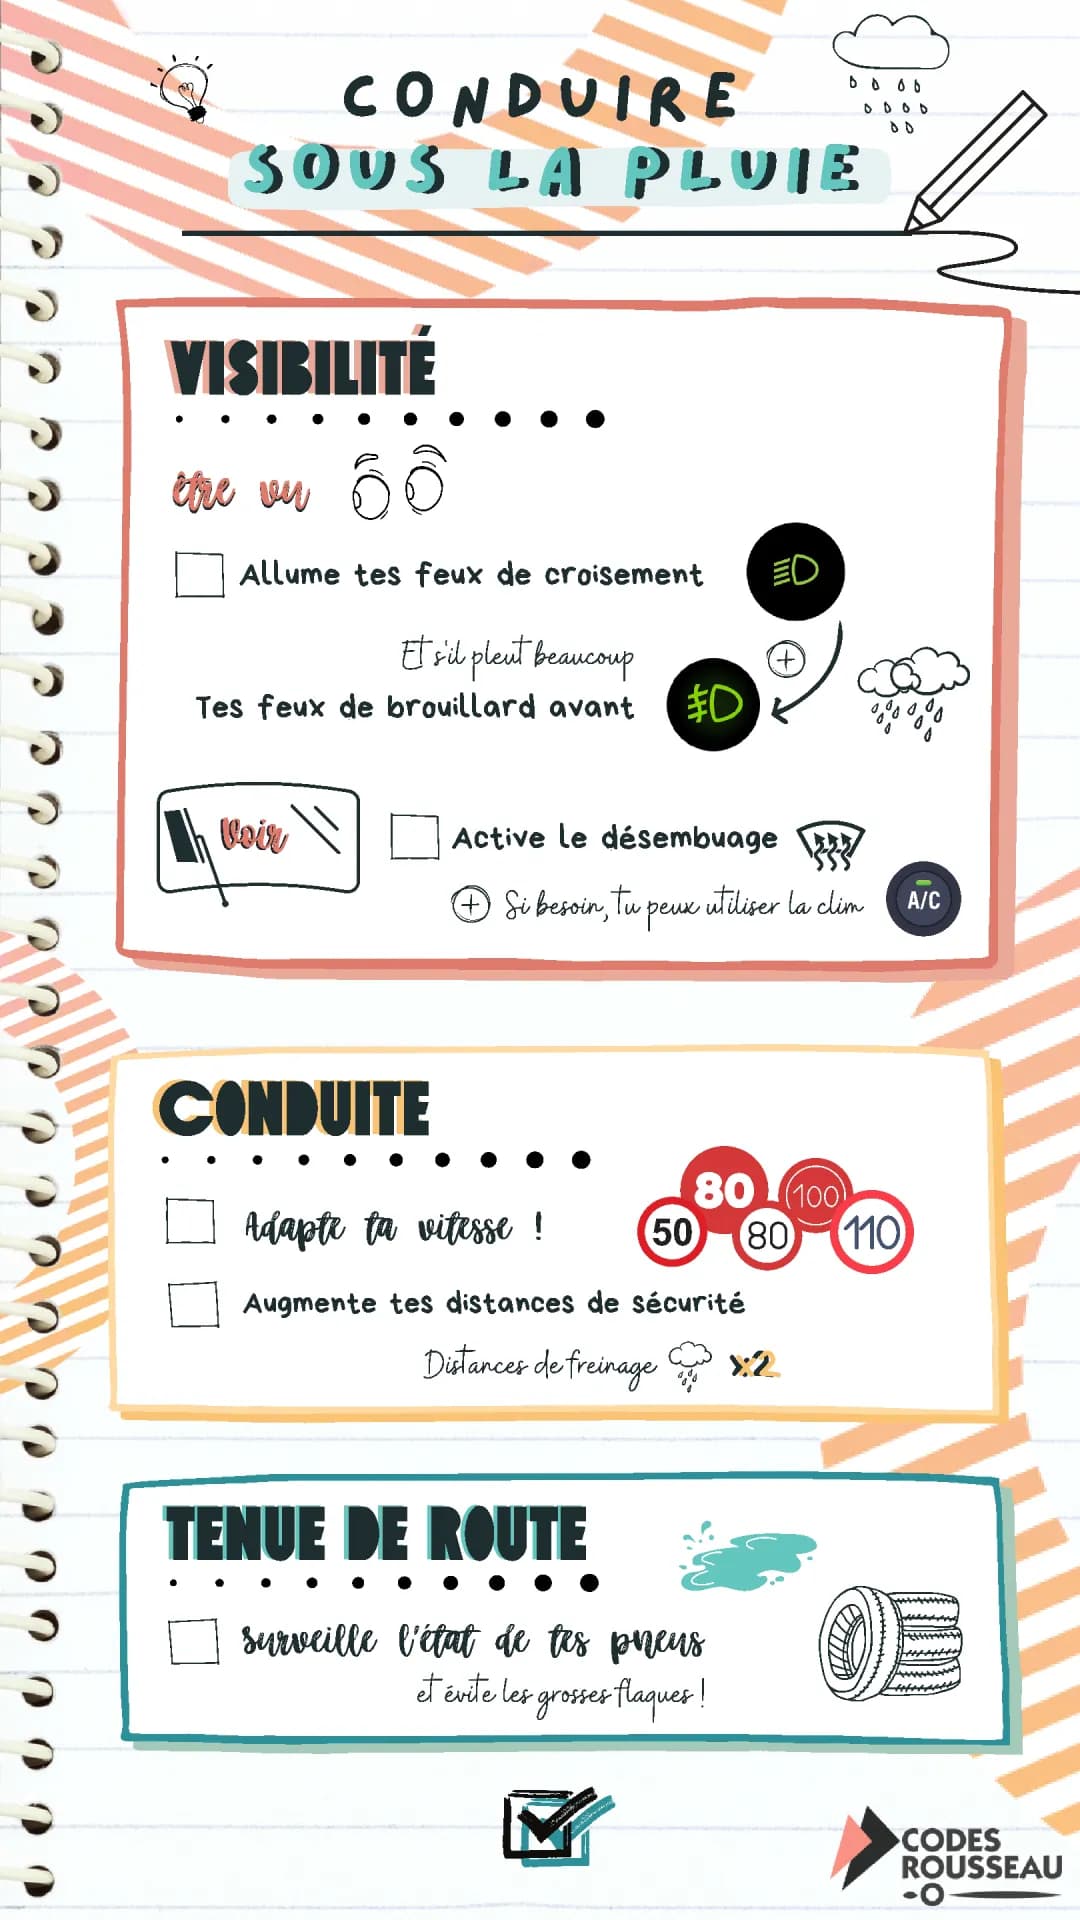 CONDUIRE
SOUS LA PLUIE
VISIBILITÉ
être vu
Allume tes feux de croisement
Et s'il pleut beaucoup
Tes feux de brouillard avant
Voir
Active le désembuage
Si besoin, tu peux utiliser la clim
A/C
CONDUITE
80
100
50
80
110
Adapte ta vitesse !
Augmente tes distances de sécurité
Distances de freinage x2
TENUE DE ROUTE
Surveille l'état de tes pneus
et évite les grosses flaques !
CODES
ROUSSEAU